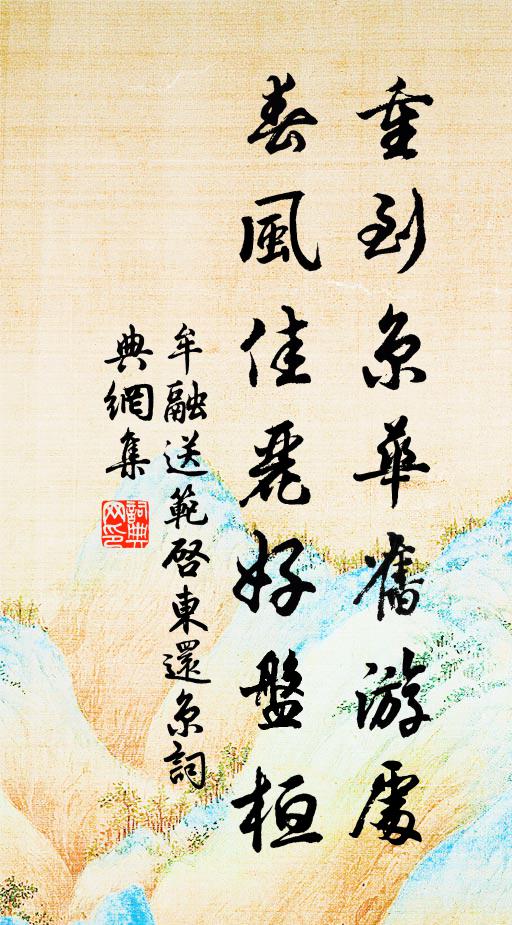 重到京華舊游處
春風佳麗好盤桓
牟融送範啓東還京詞
典網集
詞典
网印